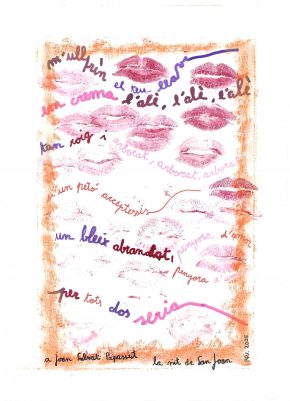 m'ullprèn el teu llavi
em crema l'alè, l'alè, l'alè
tan roig i arborat, arborat, arborat
un petó acceptaries
un bleix abrandat, penyora d'amor
penyora d'a
per tots dos seria
a Joan Salvat Papasseit la nit de San Joan